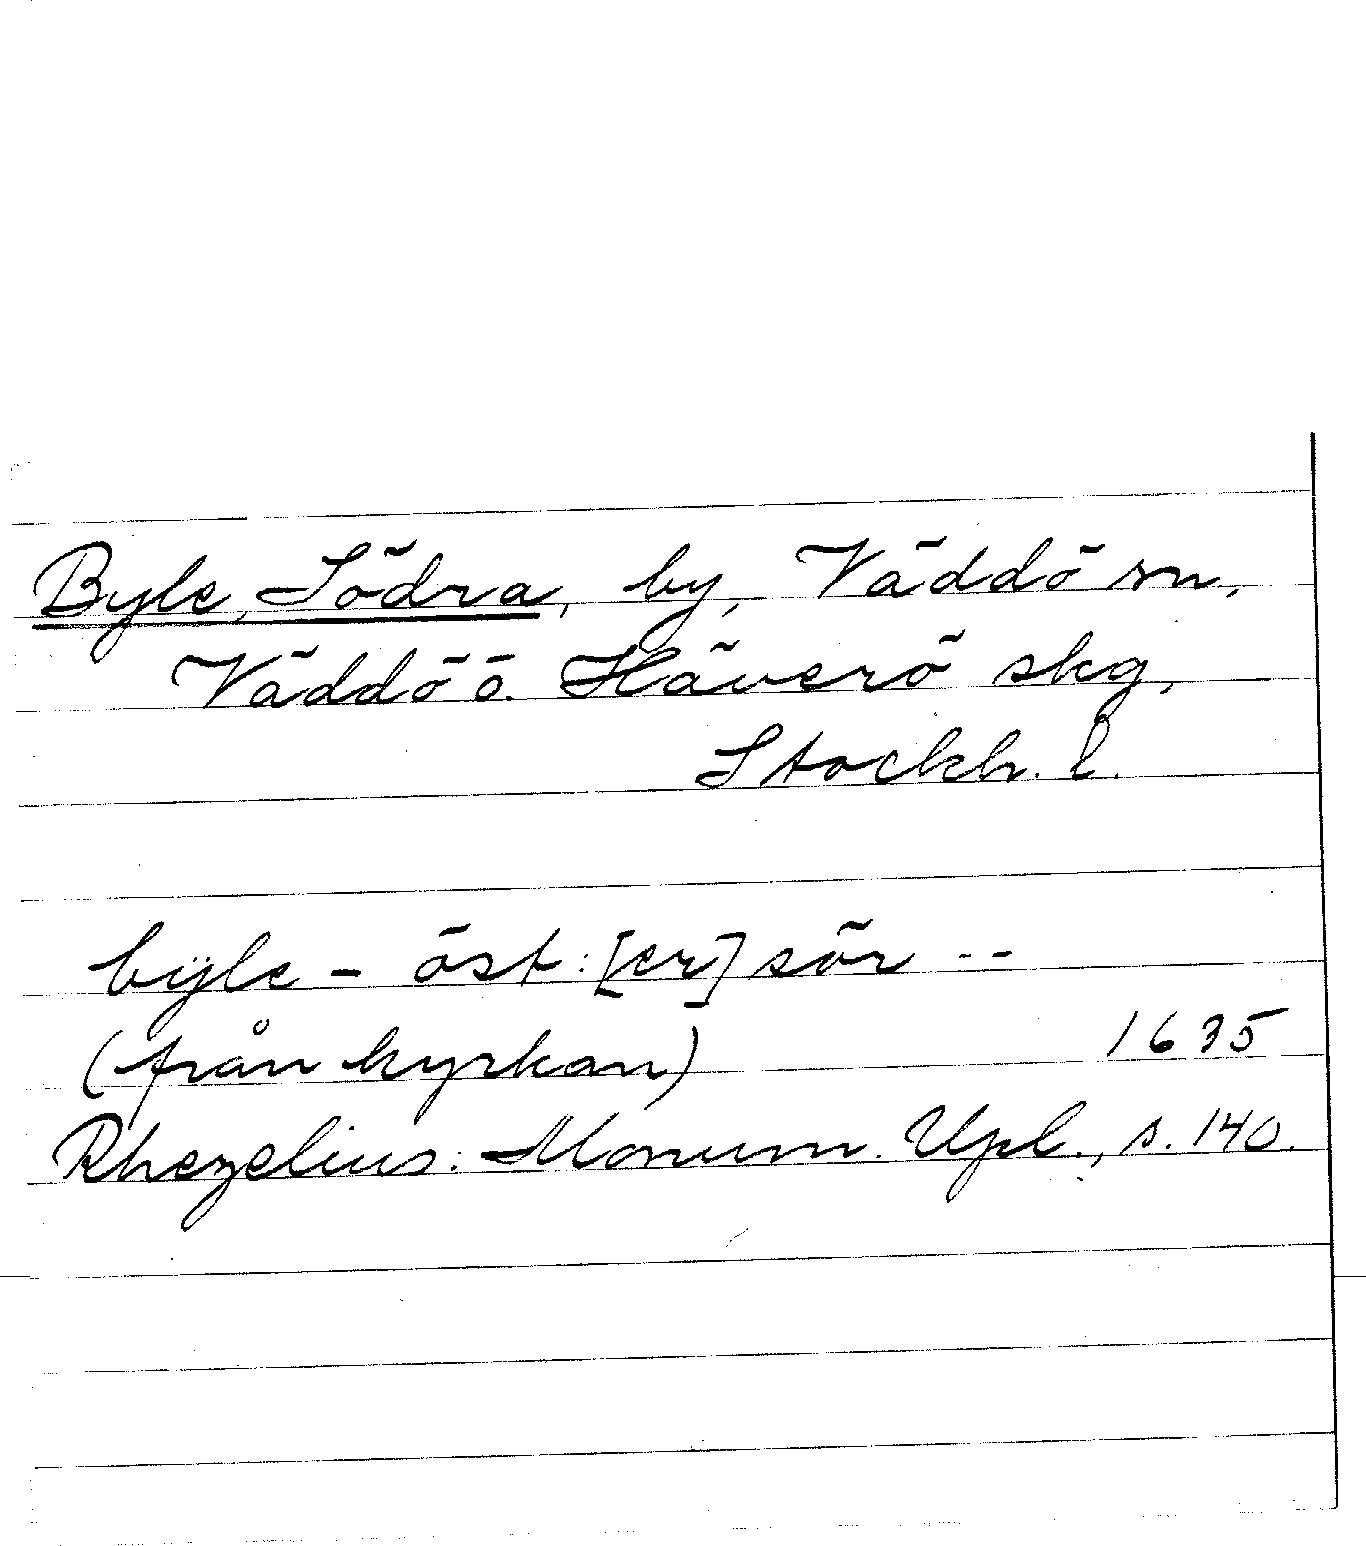 Byle, Södra, by, Väddö sn,
Väddö ö. Häverö skg,
Stockh. l.
bÿle - öst: [er] sör --
(från kyrkan) 1635
Rhezelius: Monum. Upl., s. 140.